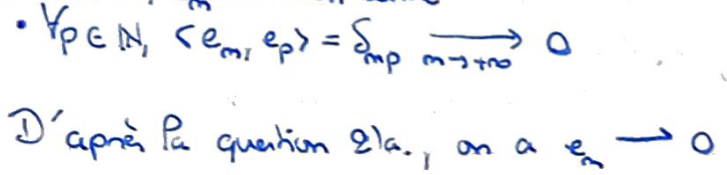 • ∀p∈ℕ, <e_m, e_p> = δ_mp ⟶ 0
m→+∞
D'après la question 2)a., on a e_n ⟶ 0